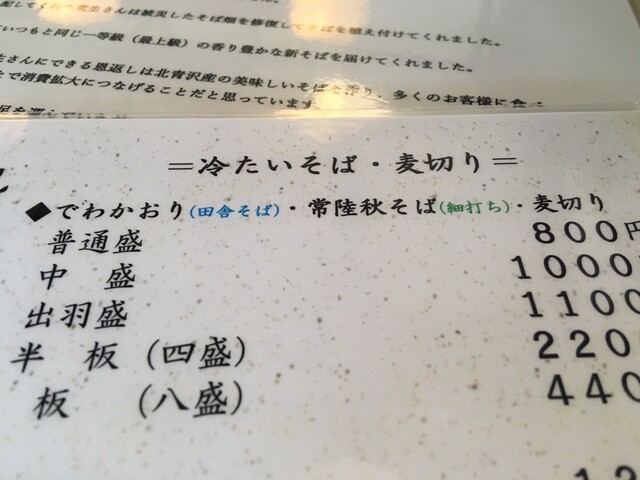 配してくれた生産さんは被災したそば畑を修復してそばを植え付けてくれました。
いつもと同じ一等級(最上級)の香り豊かな新そばを届けてくれました。
さんにできる恩返しは北青沢産の美味しいそばを 多くのお客様に食べ
で消費拡大につなげることだと思っています
=冷たいそば・麦切り=
◆でわかおり(田舎そば)・常陸秋そば(細打ち)・麦切り
普通盛 800円
中 盛 1000
出羽盛 1100
半 板 (四盛) 220
板 (八盛) 440